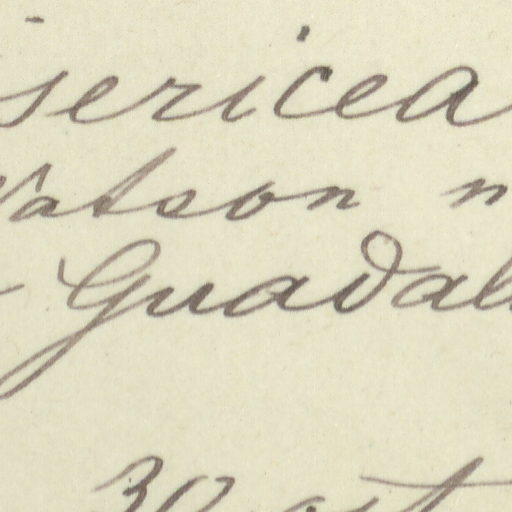 sericea
Watson n
Guadal
30 oct